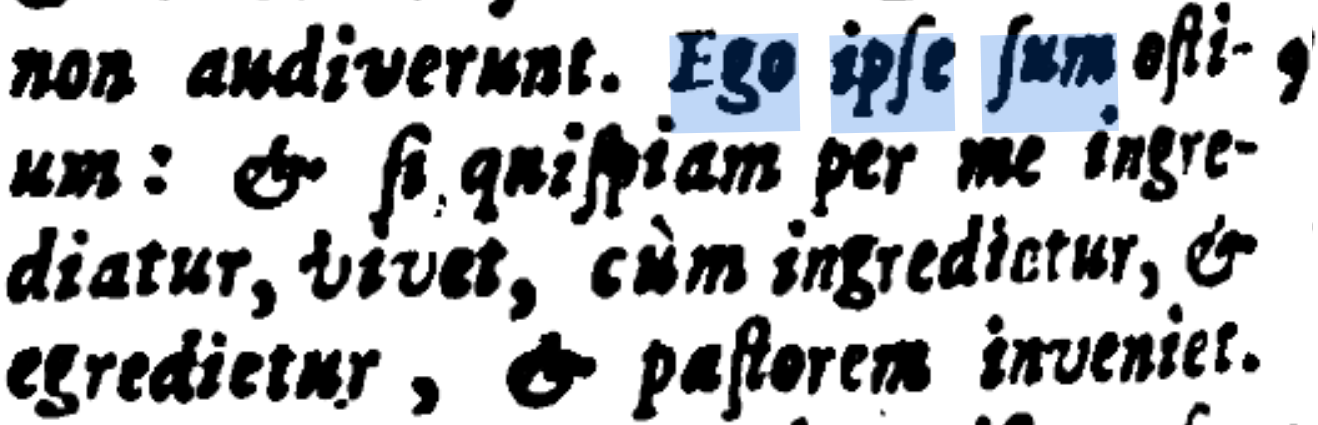 non audiverunt. Ego ipſe ſum oſti-
um: & ſi quiſpiam per me ingre-
diatur, vivet, cùm ingredietur, &
egredietur, & paſtorem inveniet.